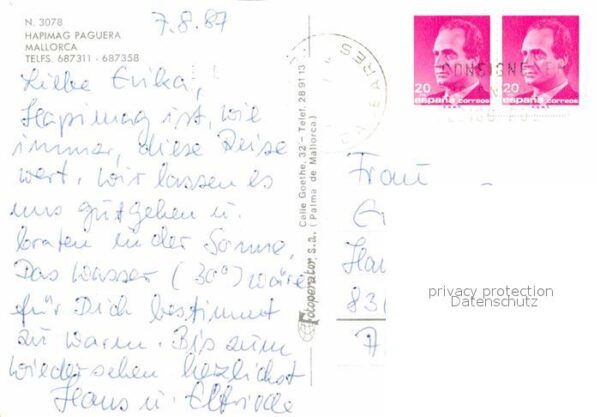 N. 3078
HAPIMAG PAGUERA
MALLORCA
TELFS. 687311 - 687358
7.8.87
Liebe Erika,
Hapimag ist, wie
immer, diese Reise
wert. Wir lassen es
uns gutgehen u.
braten in der Sonne.
Das Wasser (30°) wäre
für Dich bestimmt
zu warm. Bis zum
Wiedersehen herzlichst
Hans u. Elfriede
Fotoperator, s.a.
Calle Goethe, 32 - Telef. 28 91 13
(Palma de Mallorca)
20
españa correos
20
españa correos
CONSIGNE
Frau
83
7
privacy protection
Datenschutz